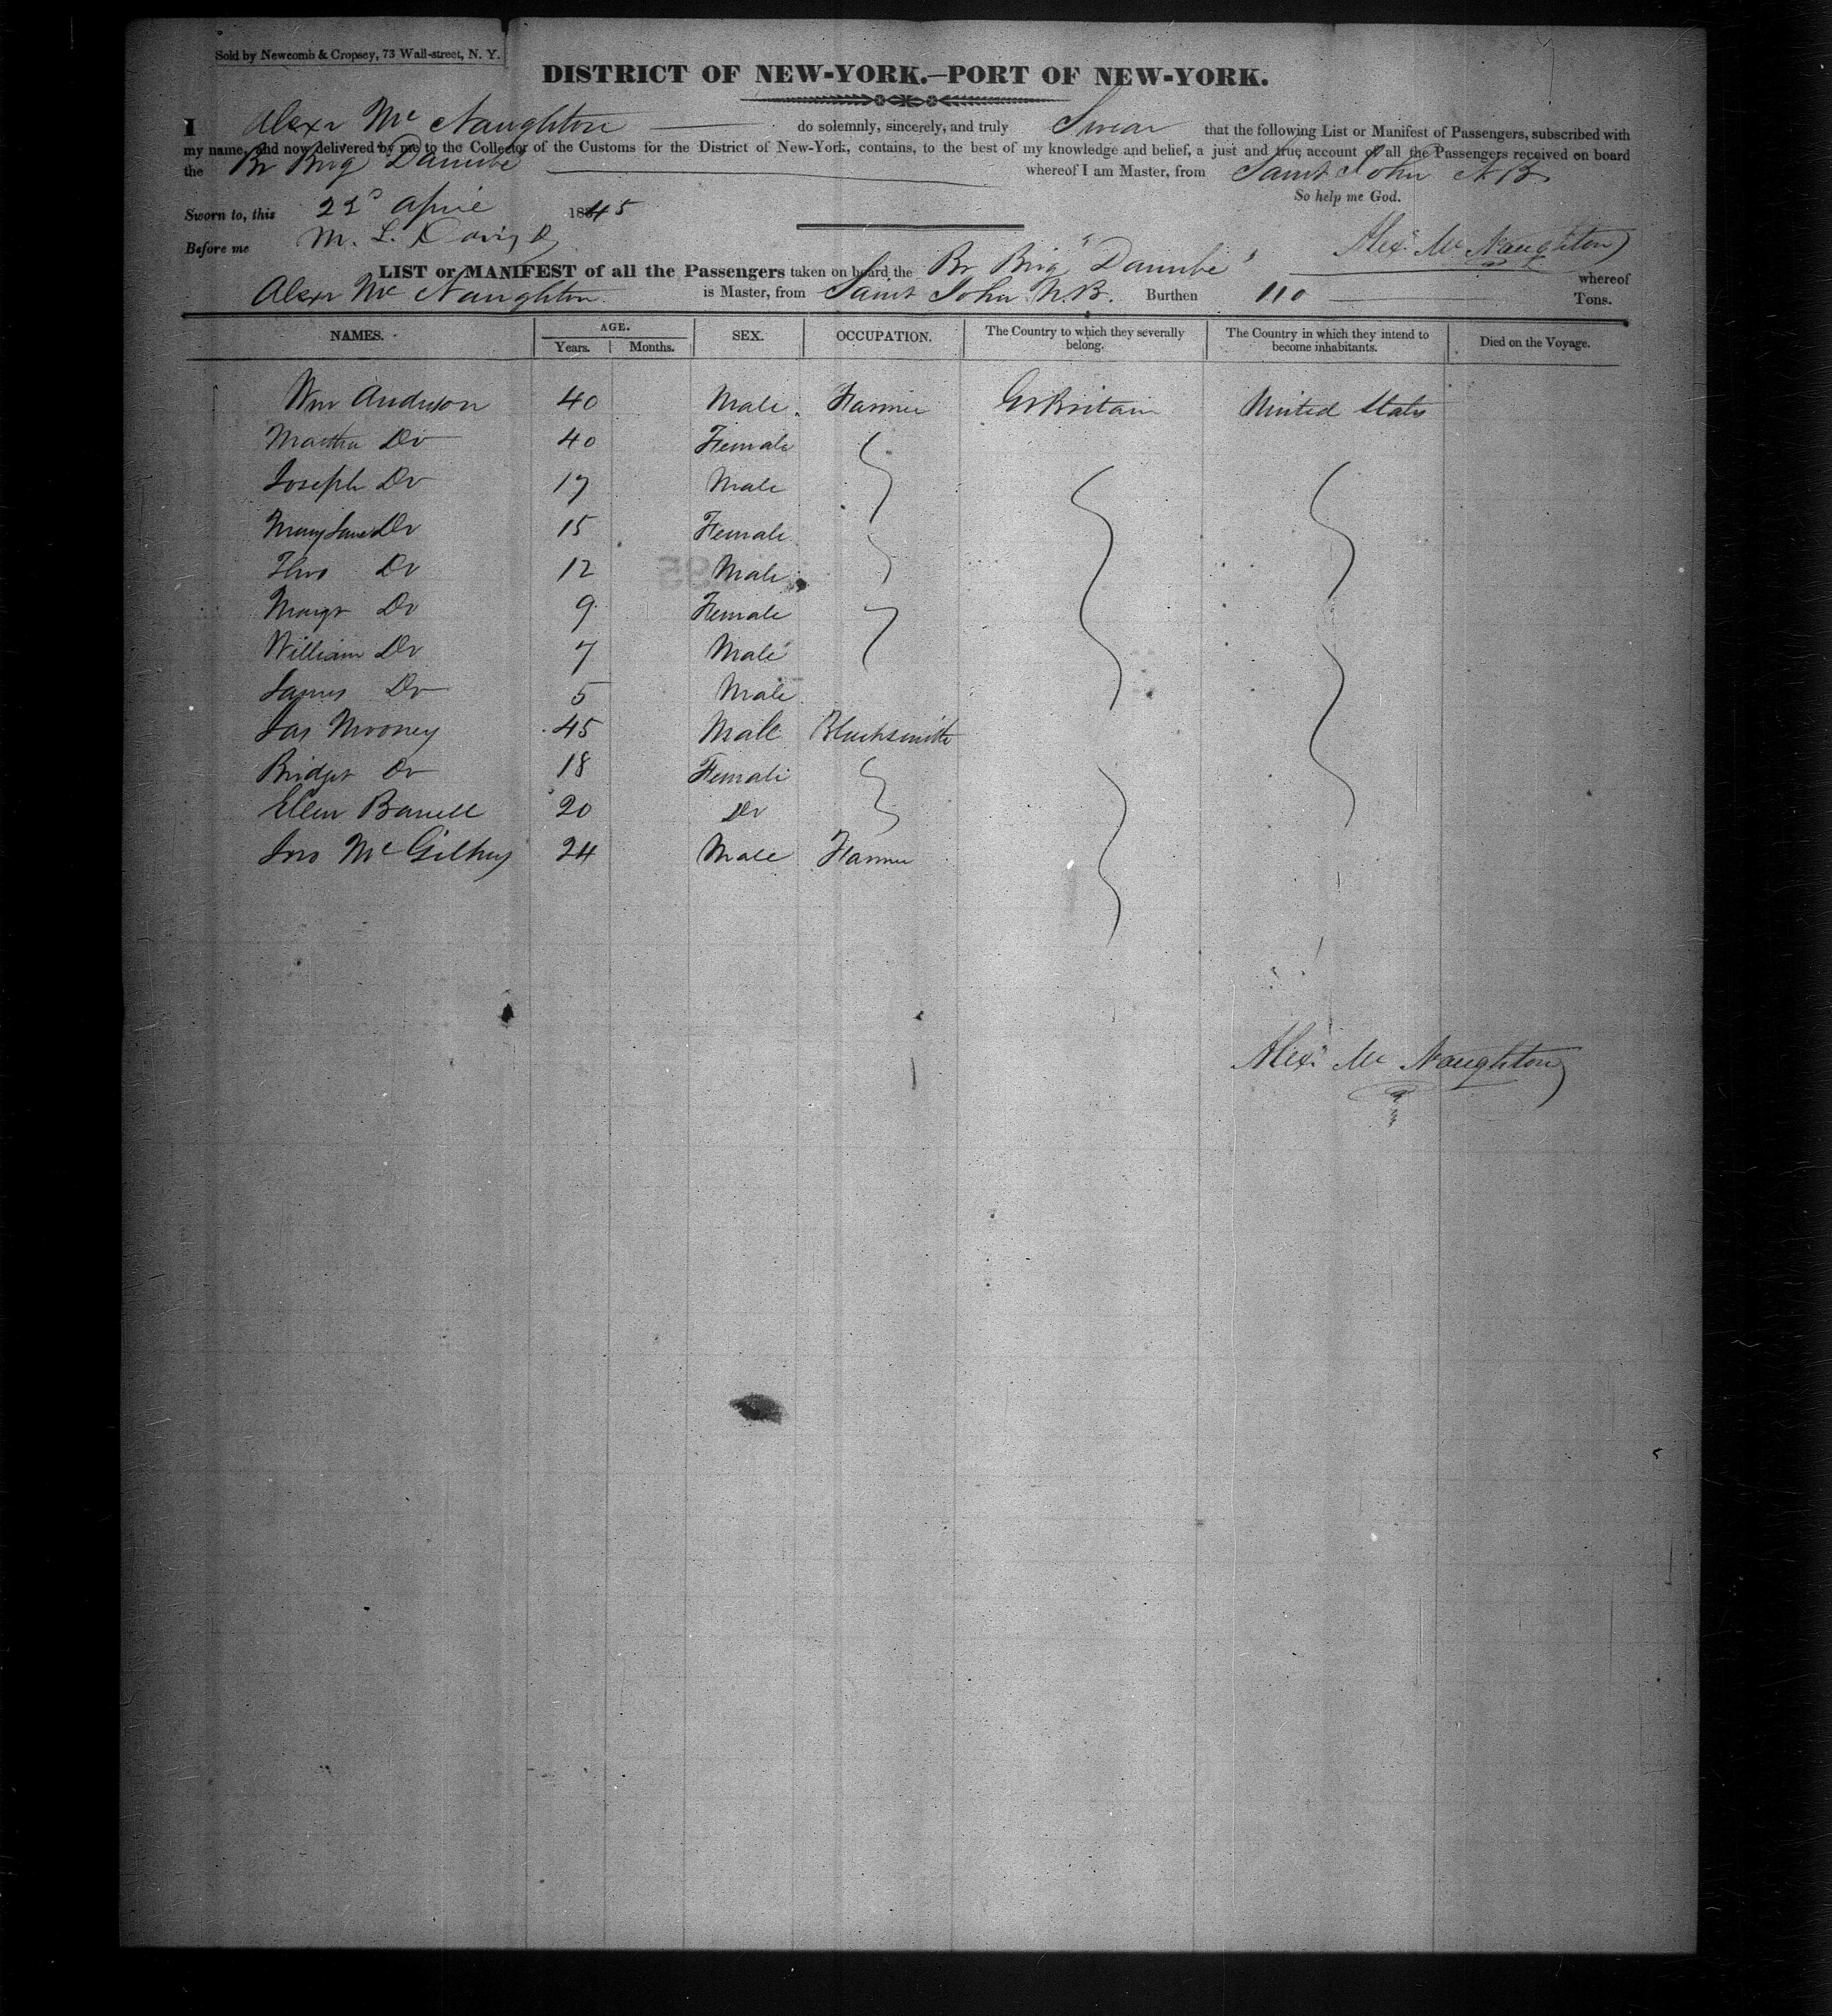 Sold by Newcomb & Cropsey, 73 Wall-street, N. Y.
DISTRICT OF NEW-YORK.—PORT OF NEW-YORK.
I Alexr Mc Naughton do solemnly, sincerely, and truly Swear that the following List or Manifest of Passengers, subscribed with
my name, and now delivered by me to the Collector of the Customs for the District of New-York, contains, to the best of my knowledge and belief, a just and true account of all the Passengers received on board
the Br Brig "Danube whereof I am Master, from Saint John N B
So help me God.
Sworn to, this 22d April 1845
Before me M. L. Davis
Alexr Mc Naughton
LIST or MANIFEST of all the Passengers taken on board the Br Brig "Danube" whereof
Alexr Mc Naughton is Master, from Saint John N.B. Burthen 110 Tons.
NAMES. AGE. SEX. OCCUPATION. The Country to which they severally belong. The Country in which they intend to become inhabitants. Died on the Voyage.
Years. Months.
Wm Anderson 40 Male Farmer Gr Britain United States
Martha Do 40 Female
Joseph Do 17 Male
Mary Jane Do 15 Female
Thos Do 12 Male
Margt Do 9 Female
William Do 7 Male
James Do 5 Male
Jas Mooney 45 Male Blacksmith
Bridget Do 18 Female
Ellen 20 Do
Jno 24 Male Farmer
Alexr Mc Naughton